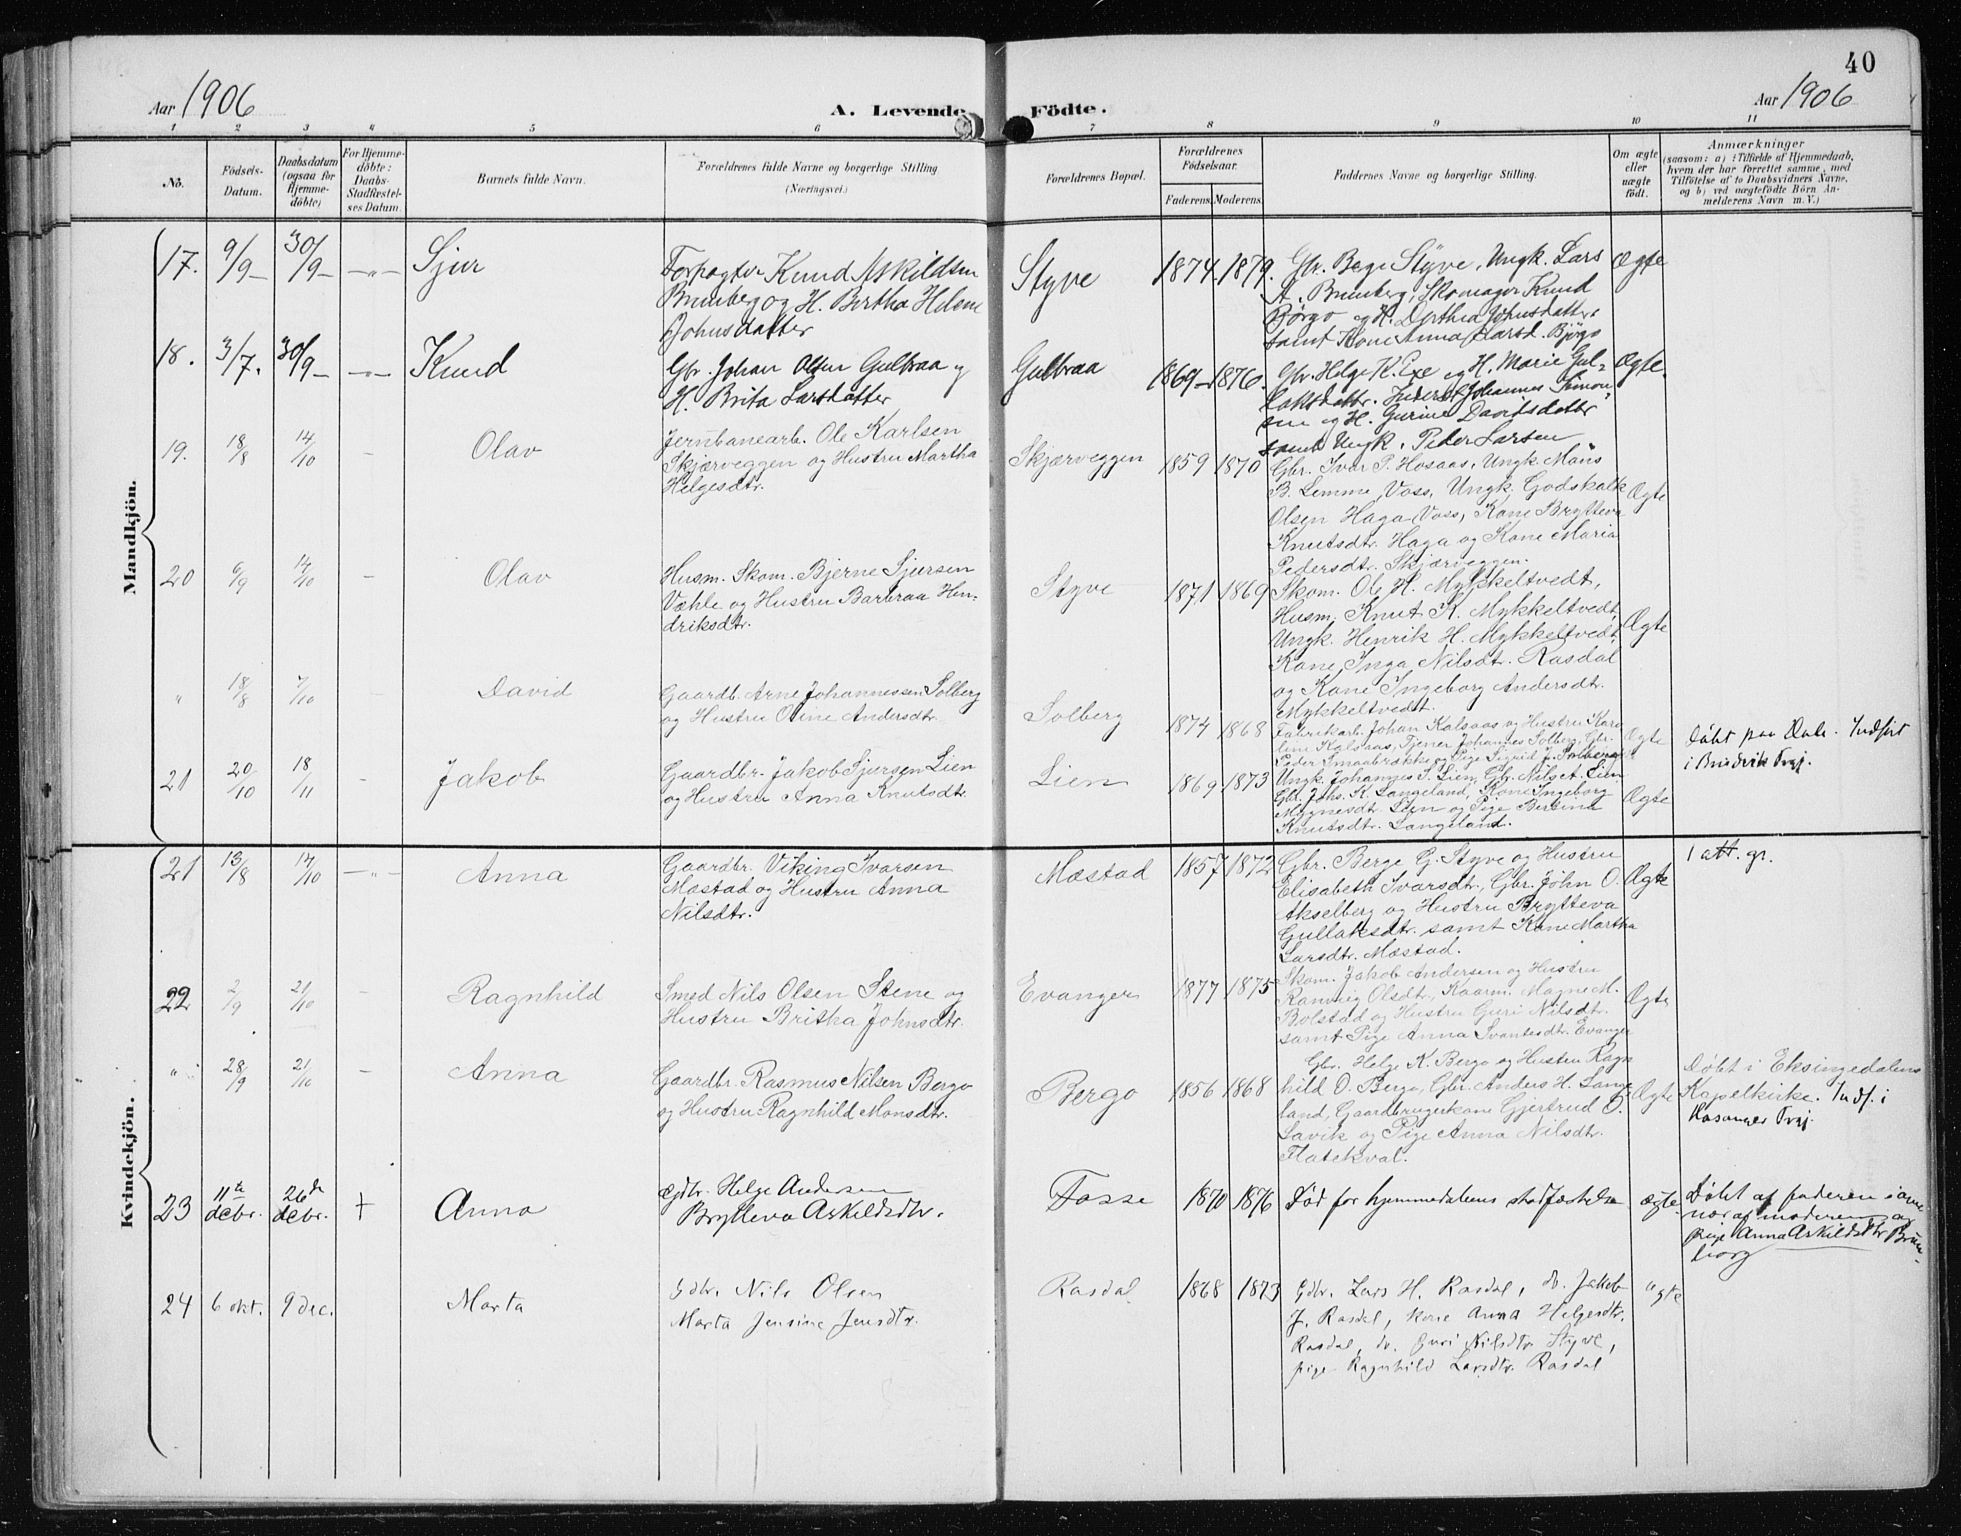 40
Aar 1906
A. Levende Födte.
Aar 1906
1 2 3 4 5 6 7 8 9 10 11
No.
Födsels-
Datum.
Daabsdatum
(ogsaa for
Hjemme-
döbte)
For Hjemme-
döbte:
Daabs-
Stadfæstel-
ses Datum.
Barnets fulde Navn.
Forældrenes fulde Navne og borgerlige Stilling
(Næringsvei.)
Forældrenes Bopæl.
Forældrenes
Födselsaar.
Faderens. Moderens.
Faddernes Navne og borgerlige Stilling.
Om ægte
eller
uægte
födt.
Anmærkninger
(saasom: a) i Tilfælde af Hjemmedaab,
hvem der har forrettet samme, med
Tilföielse af to Daabsvidners Navne,
og b) ved uægtefödte Börn An-
melderens Navn m. V.)
Mandkjön.
17. 9/9 30/9 Sjur
Forpagter Knud Askildsen
Brunberg og H. Bertha Helene
Johnsdatter
Styve 1874. 1879.
Gbr. Berge Styve, Ungk. Lars
A. Brunberg, Skomager Knud
Børgo og H. Dorthea Johnsdatter
samt Kone Anna Larsd. Bjørgo
Ægte
18. 3/7. 30/9 Knud
Gbr. Johan Olsen Gulbraa og
H. Brita Larsdatter
Gulbraa 1869 1876.
Gbr. Helge K. Exe og H. Marie Gul-
laksdattr. Johannes Simon
sen og H. Gurine Davidsdatter
samt Ungk. Peder Larsen
Ægte.
19. 18/8 14/10 Olav
Jernbanearb. Ole Karlsen
Skjærveggen og Hustru Martha
Helgesdtr.
Skjærveggen 1859 1870
Gbr. Ivar P. Hosaas, Ungk. Mons
B. Lemme, Voss, Ungk. Godskalk
Olsen Haga, Voss, Kone Brytteva
Knutsdtr. Haga og Kone Maria
Pedersdtr. Skjærveggen.
Ægte
20 6/9 14/10 Olav
Husm. Skom. Bjerne Sjursen
Væhle og Hustru Barbraa Hen-
driksdtr.
Styve 1871 1869
Skom. Ole H. Mykkeltvedt,
Husm. Knut K. Mykkeltvedt,
Ungk. Henrik H. Mykkeltvedt,
Kone Inga Nilsdtr. Rasdal
og Kone Ingeborg Andersdtr.
Mykkeltvedt.
Ægte
" 18/8 7/10 David
Gaardb. Arne Johannessen Solberg
og Hustru Oline Andersdtr.
Solberg 1874 1868
Fabrikarb. Johan Kalsaas og Hustru Karo
line Kalsaas, Tjener Johannes Solberg, Gbr.
Peder Smaabrække og Pige Sigrid J. Solberg
Ægte
Døbt paa Dale. Indført
i Bruvik Prgj.
21 20/10 18/11 Jakob
Gaardbr. Jakob Sjursen Lien
og Hustru Anna Knutsdtr.
Lien 1869 1873
Ungk. Johannes S. Lien, Gbr. Nils A. Lien
Gbr. Johs. K. Langeland, Kone Ingeborg
Magnesdtr. Lien og Pige Bertina
Knutsdtr. Langeland.
Ægte
Kvindekjön.
21 13/8 14/10 Anna
Gaardbr. Viking Ivarsen
Mæstad og Hustru Anna
Nilsdtr.
Mæstad 1857 1872
Gbr. Berge G. Styve og Hustru
Elisabeth Ivarsdtr, Gbr. John O.
Akselberg og Hustru Brytteva
Gullaksdtr. samt Kone Martha
Larsdtr. Mæstad.
Ægte
1 att. gr.
22 2/9 21/10 Ragnhild
Smed Nils Olsen Stene og
Hustru Britha Johnsdtr.
Evanger 1877 1875
Skom. Jakob Andersen og Hustru
Ranveig Olsdtr, Kaarm. Magne M.
Bolstad og Hustru Guri Nilsdtr.
samt Pige Anna Svantesdtr. Evanger
Ægte
" 28/9 21/10 Anna
Gaardbr. Rasmus Nilsen Bergo
og Hustru Ragnhild Monsdtr.
Bergo 1856 1868
Gbr. Helge K. Bergo og Hustru Ragn
hild O. Bergo, Gbr. Anders H. Lange
land, Gaardbrugerkone Gjertrud O.
Lavik og Pige Anna Nilsdtr.
Flatekval.
Ægte
Døbt i Eksingedalens
Kapelkirke. Indf. i
Hosanger Prgj.
23 11te decbr. 26de decbr. + Anna
Gdbr. Helge Andersen
Brytteva Askildsdtr.
Fosse 1870 1876
Død før hjemmedaabens stadfæstelse
ægte
Døbt af faderen i
nær af moderen og
pige Anna Askildsdtr Brun-
borg
24 6 okt. 9 dec. Marta
Gdbr. Nils Olsen
Marta Jensine Jensdtr.
Rasdal 1868 1873
Gdbr. Lars H. Rasdal, do. Jakob
J. Rasdal, kone Anna Helgesdtr.
Rasdal, do. Guri Nilsdtr Styve,
pige Ragnhild Larsdtr. Rasdal
ægte